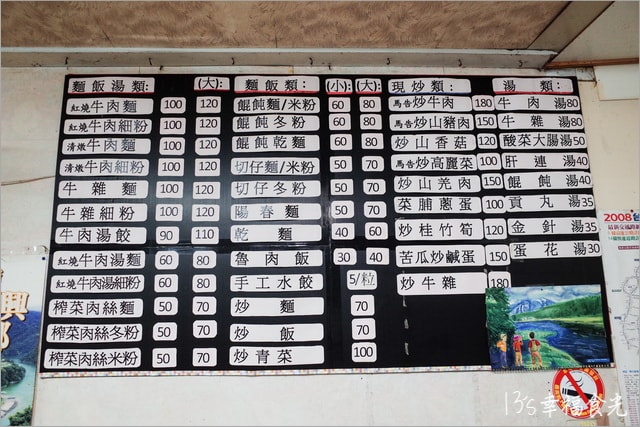 麵飯湯類: (大):
紅燒牛肉麵 100 120
紅燒牛肉細粉 100 120
清燉牛肉麵 100 120
清燉牛肉細粉 100 120
牛雜麵 100 120
牛雜細粉 100 120
牛肉湯餃 90 110
紅燒牛肉湯麵 60 80
紅燒牛肉湯細粉 60 80
榨菜肉絲麵 50 70
榨菜肉絲冬粉 50 70
榨菜肉絲米粉 50 70
麵飯類: (小) (大):
餛飩麵/米粉 60 80
餛飩冬粉 60 80
餛飩乾麵 60 80
切仔麵/米粉 50 70
切仔冬粉 50 70
陽春麵 50 70
乾麵 40 60
魯肉飯 30 40
手工水餃 5/粒
炒麵 70
炒飯 70
炒青菜 100
現炒類:
馬告炒牛肉 180
馬告炒山豬肉 150
炒山香菇 120
馬告炒高麗菜 100
炒山羌肉 150
菜脯蔥蛋 100
炒桂竹筍 120
苦瓜炒鹹蛋 150
炒牛雜 180
湯類:
牛肉湯80
牛雜湯80
酸菜大腸湯50
肝連湯40
餛飩湯40
貢丸湯35
金針湯35
蛋花湯30
2008
13's幸福食光